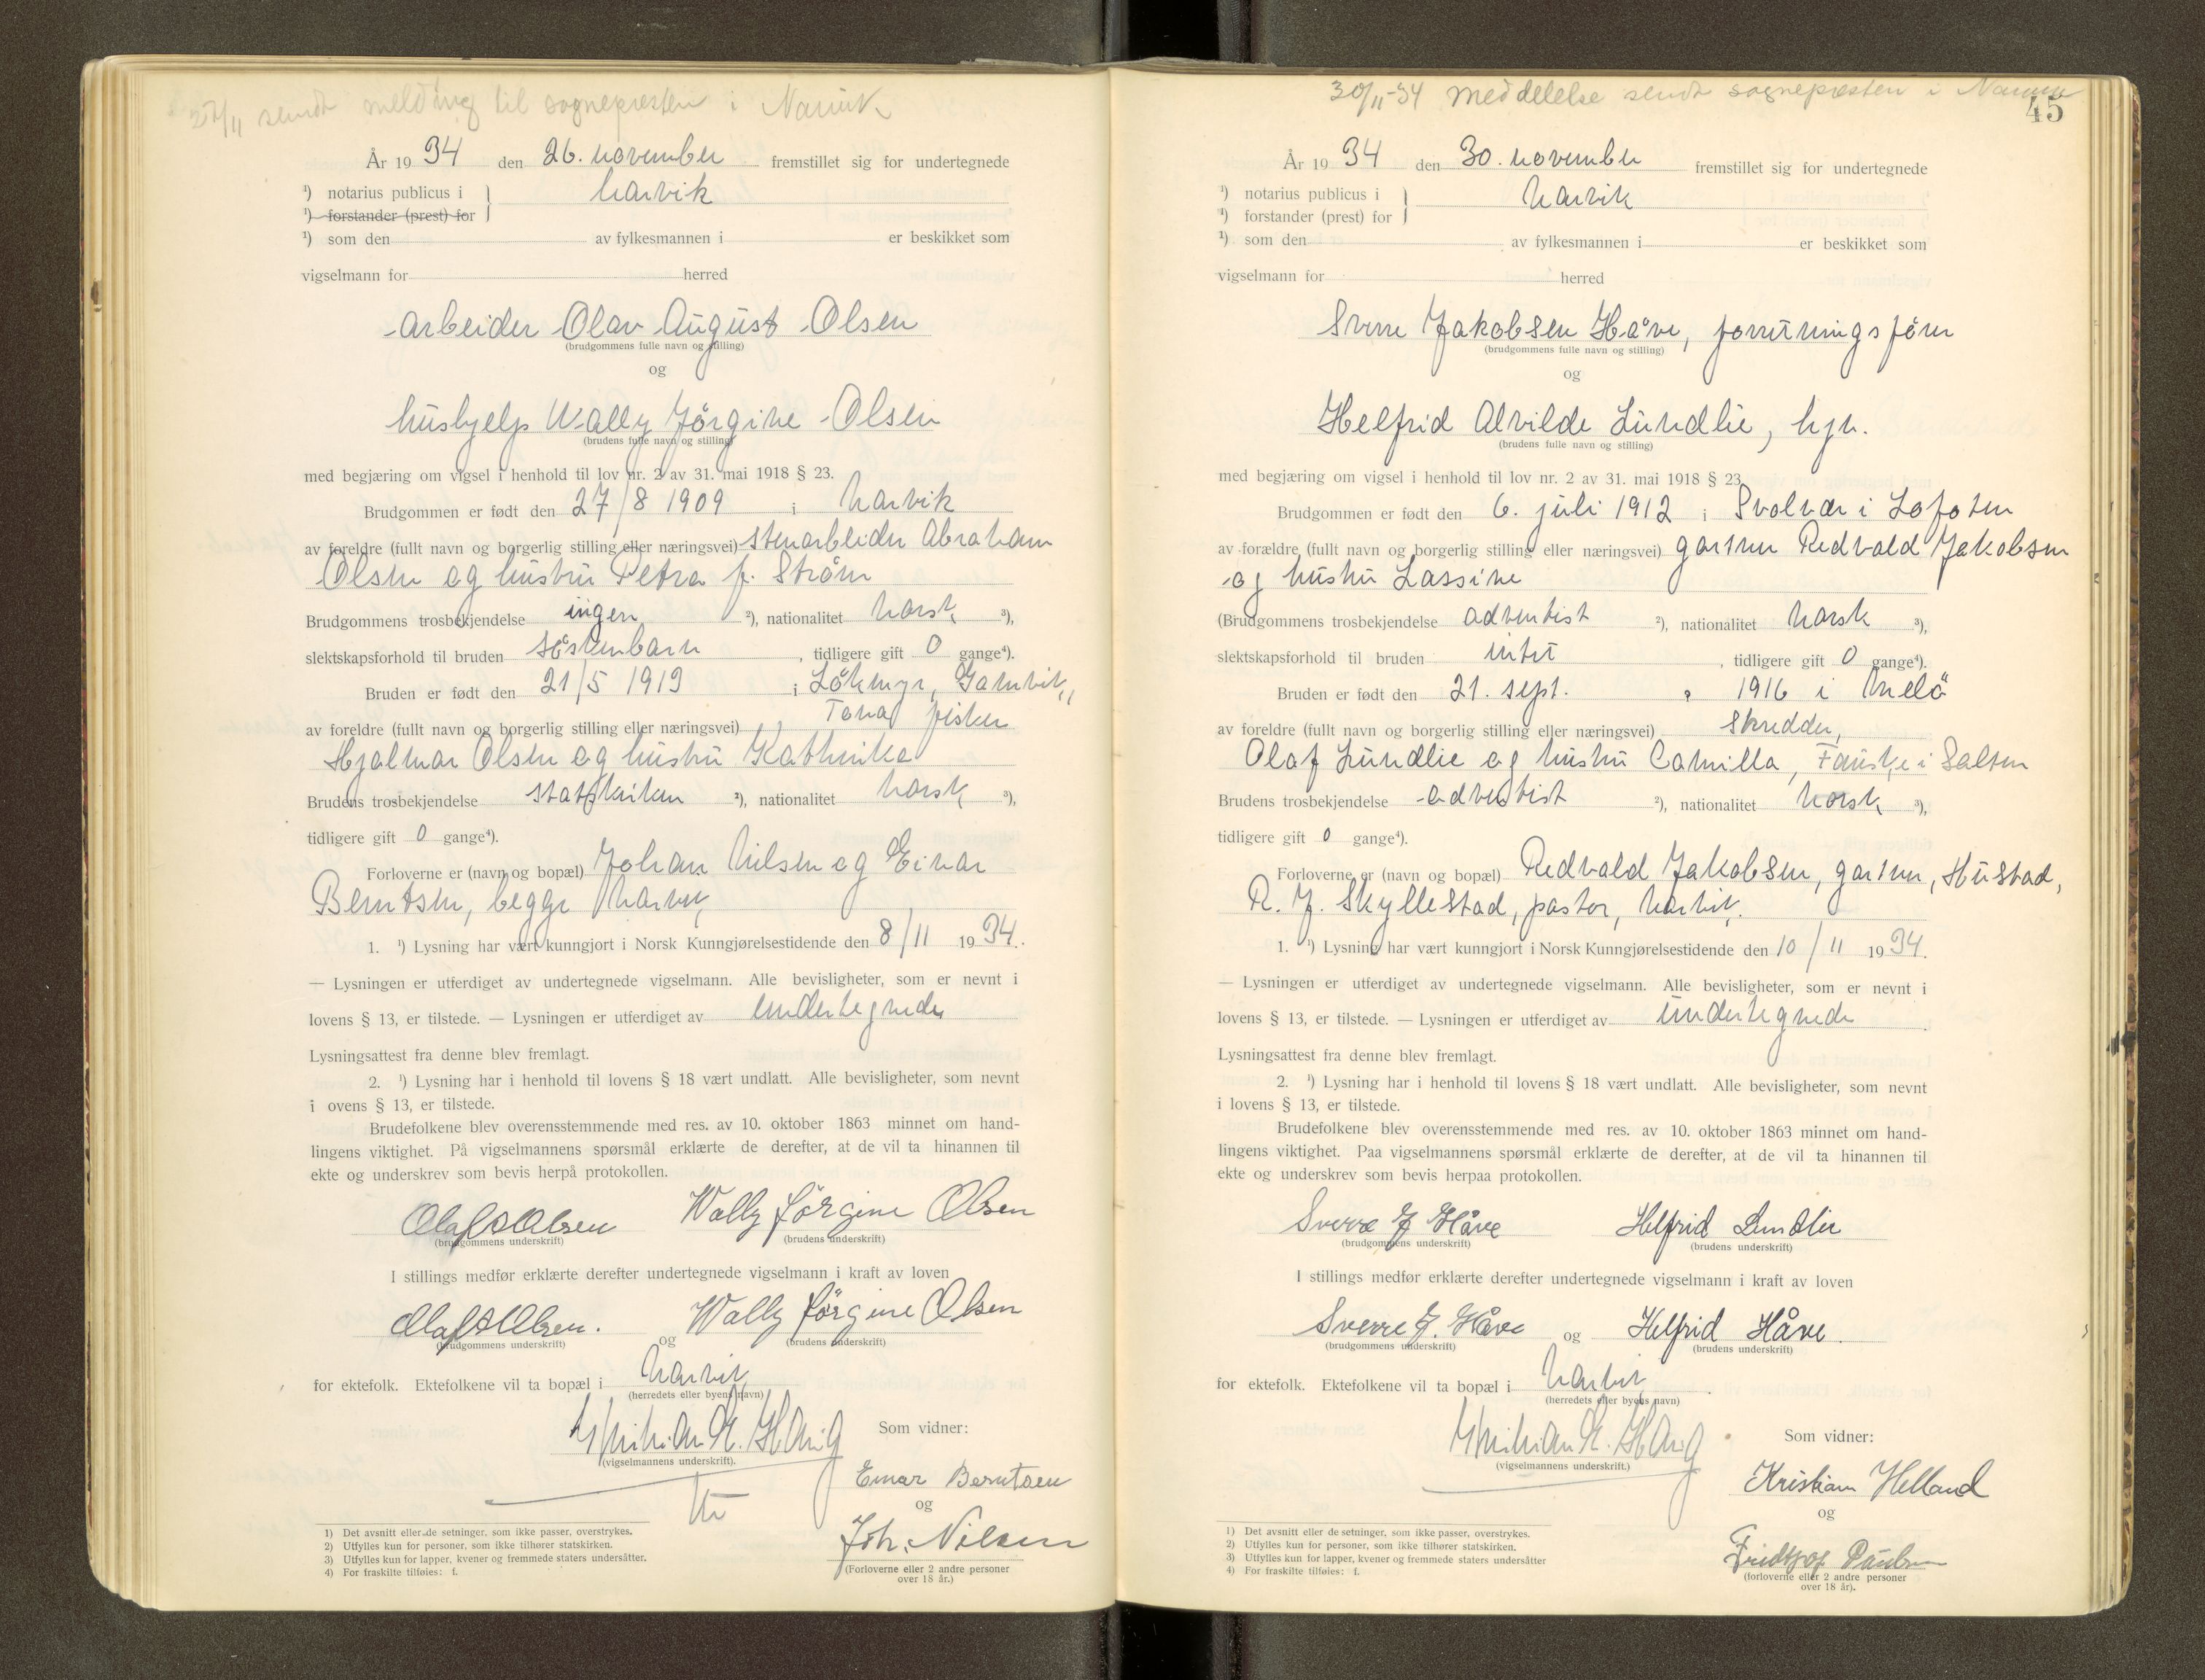 27/11 sendt melding til sognepresten i Narvik
År 1934 den 26. november fremstillet sig for undertegnede
¹) notarius publicus i } Narvik
¹) forstander (prest) for
¹) som den av fylkesmannen i er beskikket som
vigselmann for herred
arbeider Olav August Olsen
(brudgommens fulle navn og stilling)
og
hushjelp Wally Jörgine Olsen
(brudens fulle navn og stilling)
med begjæring om vigsel i henhold til lov nr. 2 av 31. mai 1918 § 23.
Brudgommen er født den 27/8 1909 i Narvik
av foreldre (fullt navn og borgerlig stilling eller næringsvei) stenarbeider Abraham
Olsen og hustru Petra f. Ström
Brudgommens trosbekjendelse ingen ²), nationalitet norsk ³),
slektskapsforhold til bruden söskenbarn, tidligere gift 0 gange⁴).
Bruden er født den 21/5 1913 i Gamvik,
av foreldre (fullt navn og borgerlig stilling eller næringsvei) Tana fisker
Hjalmar Olsen og hustru Kathrine
Brudens trosbekjendelse statskirken ²), nationalitet norsk ³),
tidligere gift 0 gange⁴).
Forloverne er (navn og bopæl) Johan Nilsen og Einar
Berntsen, begge Narvik
1. ¹) Lysning har vært kunngjort i Norsk Kunngjørelsestidende den 8/11 1934.
— Lysningen er utferdiget av undertegnede vigselmann. Alle bevisligheter, som er nevnt i
lovens § 13, er tilstede. — Lysningen er utferdiget av undertegnede
Lysningsattest fra denne blev fremlagt.
2. ¹) Lysning har i henhold til lovens § 18 vært undlatt. Alle bevisligheter, som nevnt
i ovens § 13, er tilstede.
Brudefolkene blev overensstemmende med res. av 10. oktober 1863 minnet om hand-
lingens viktighet. På vigselmannens spørsmål erklærte de derefter, at de vil ta hinannen til
ekte og underskrev som bevis herpå protokollen.
Olaf A Olsen Wally Jörgine Olsen
(brudgommens underskrift) (brudens underskrift)
I stillings medfør erklærte derefter undertegnede vigselmann i kraft av loven
Olaf A Olsen. og Wally Jörgine Olsen
(brudgommens underskrift) (brudens underskrift)
for ektefolk. Ektefolkene vil ta bopæl i Narvik
(herredets eller byens navn)
Som vidner:
(vigselmannens underskrift).
Einar Berntsen
og
Joh. Nilsen
(Forloverne eller 2 andre personer
over 18 år.)
1) Det avsnitt eller de setninger, som ikke passer, overstrykes.
2) Utfylles kun for personer, som ikke tilhører statskirken.
3) Utfylles kun for lapper, kvener og fremmede staters undersåtter.
4) For fraskilte tilføies: f.
30/11-34 Meddelelse sendt sognepresten i Narvik
45
År 1934 den 30. november fremstillet sig for undertegnede
¹) notarius publicus i } Narvik
¹) forstander (prest) for
¹) som den av fylkesmannen i er beskikket som
vigselmann for herred
Sverre Jakobsen Håve, forretningsförer
(brudgommens fulle navn og stilling)
og
Helfrid Alvilde Lundlie, hjv.
(brudens fulle navn og stilling)
med begjæring om vigsel i henhold til lov nr. 2 av 31. mai 1918 § 23.
Brudgommen er født den 6. juli 1912 i Svolvær i Lofoten
av forældre (fullt navn og borgerlig stilling eller næringsvei) gartner Redvald Jakobsen
og hustru Lassine
(Brudgommens trosbekjendelse adventist ²), nationalitet norsk ³),
slektskapsforhold til bruden intet, tidligere gift 0 gange⁴).
Bruden er født den 21. sept. 1916 i
av foreldre (fullt navn og borgerlig stilling eller næringsvei) skredder,
Olaf Lundlie og hustru Camilla, Fauske i Salten
Brudens trosbekjendelse adventist ²), nationalitet norsk ³),
tidligere gift 0 gange⁴).
Forloverne er (navn og bopæl) Redvald Jakobsen, gartner, Hustad,
R. J. Skyllestad, pastor, Narvik.
1. ¹) Lysning har vært kunngjort i Norsk Kunngjørelsestidende den 10/11 1934.
— Lysningen er utferdiget av undertegnede vigselmann. Alle bevisligheter, som er nevnt i
lovens § 13, er tilstede. — Lysningen er utferdiget av undertegnede.
Lysningsattest fra denne blev fremlagt.
2. ¹) Lysning har i henhold til lovens § 18 vært undlatt. Alle bevisligheter, som nevnt
i lovens § 13, er tilstede.
Brudefolkene blev overensstemmende med res. av 10. oktober 1863 minnet om hand-
lingens viktighet. Paa vigselmannens spørsmål erklærte de derefter, at de vil ta hinannen til
ekte og underskrev som bevis herpaa protokollen.
Sverre J Håve Helfrid Lundlie
(brudgommens underskrift) (brudens underskrift)
I stillings medfør erklærte derefter undertegnede vigselmann i kraft av loven
Sverre J. Håve og Helfrid Håve.
(brudgommens underskrift) (brudens underskrift)
for ektefolk. Ektefolkene vil ta bopæl i Narvik.
(herredets eller byens navn)
Som vidner:
(vigselmannens underskrift.)
Kristian Helland
og
Fridtjof Paulsen
(forloverne eller 2 andre personer
over 18 år).
1) Det avsnitt eller de setninger, som ikke passer, overstrykes.
2) Utfylles kun for personer, som ikke tilhører statskirken.
3) Utfylles kun for lapper, kvener og fremmede staters undersåtter
4) For fraskilte tilføies: f.